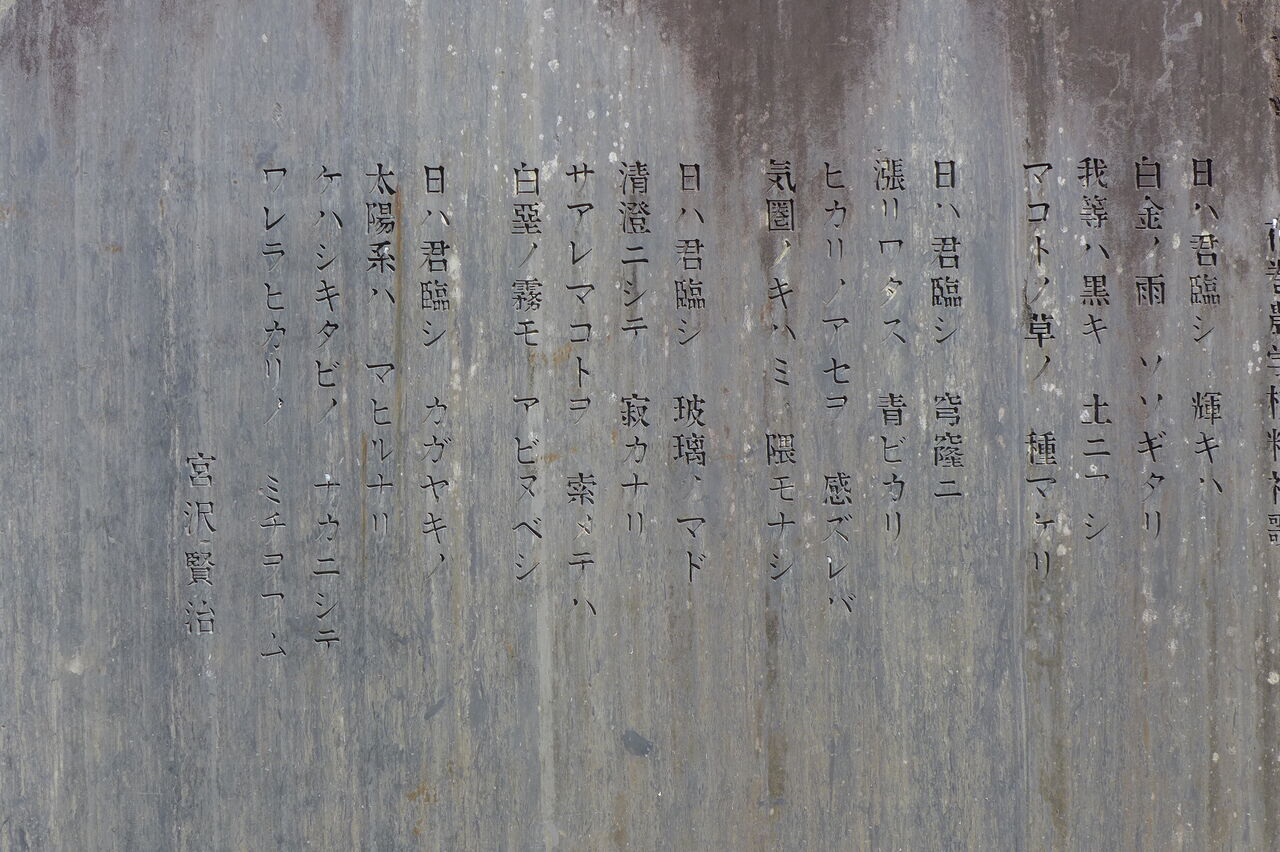 花巻農学校精神歌
日ハ君臨シ　輝キハ
白金ノ雨　ソソギタリ
我等ハ黒キ　土ニフシ
マコトノ草ノ　種マケリ
日ハ君臨シ　穹窿ニ
漲リワタス　青ビカリ
ヒカリノアセヲ　感ズレバ
気圏ノキハミ　隈モナシ
日ハ君臨シ　玻璃ノマド
清澄ニシテ　寂カナリ
サアレマコトヲ　索メテハ
白堊ノ霧モ　アビヌベシ
日ハ君臨シ　カガヤキノ
太陽系ハ　マヒルナリ
ケハシキタビノ　ナカニシテ
ワレラヒカリノ　ミチヲフム
宮沢賢治